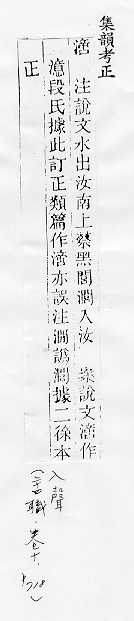 集韻考正
澺 注說文水出汝南上蔡黑閭澗入汝 案說文澺作
澺段氏據此訂正類篇作澺亦誤注澗譌㶕據二徐本
正
入聲
(二十四職·卷十·